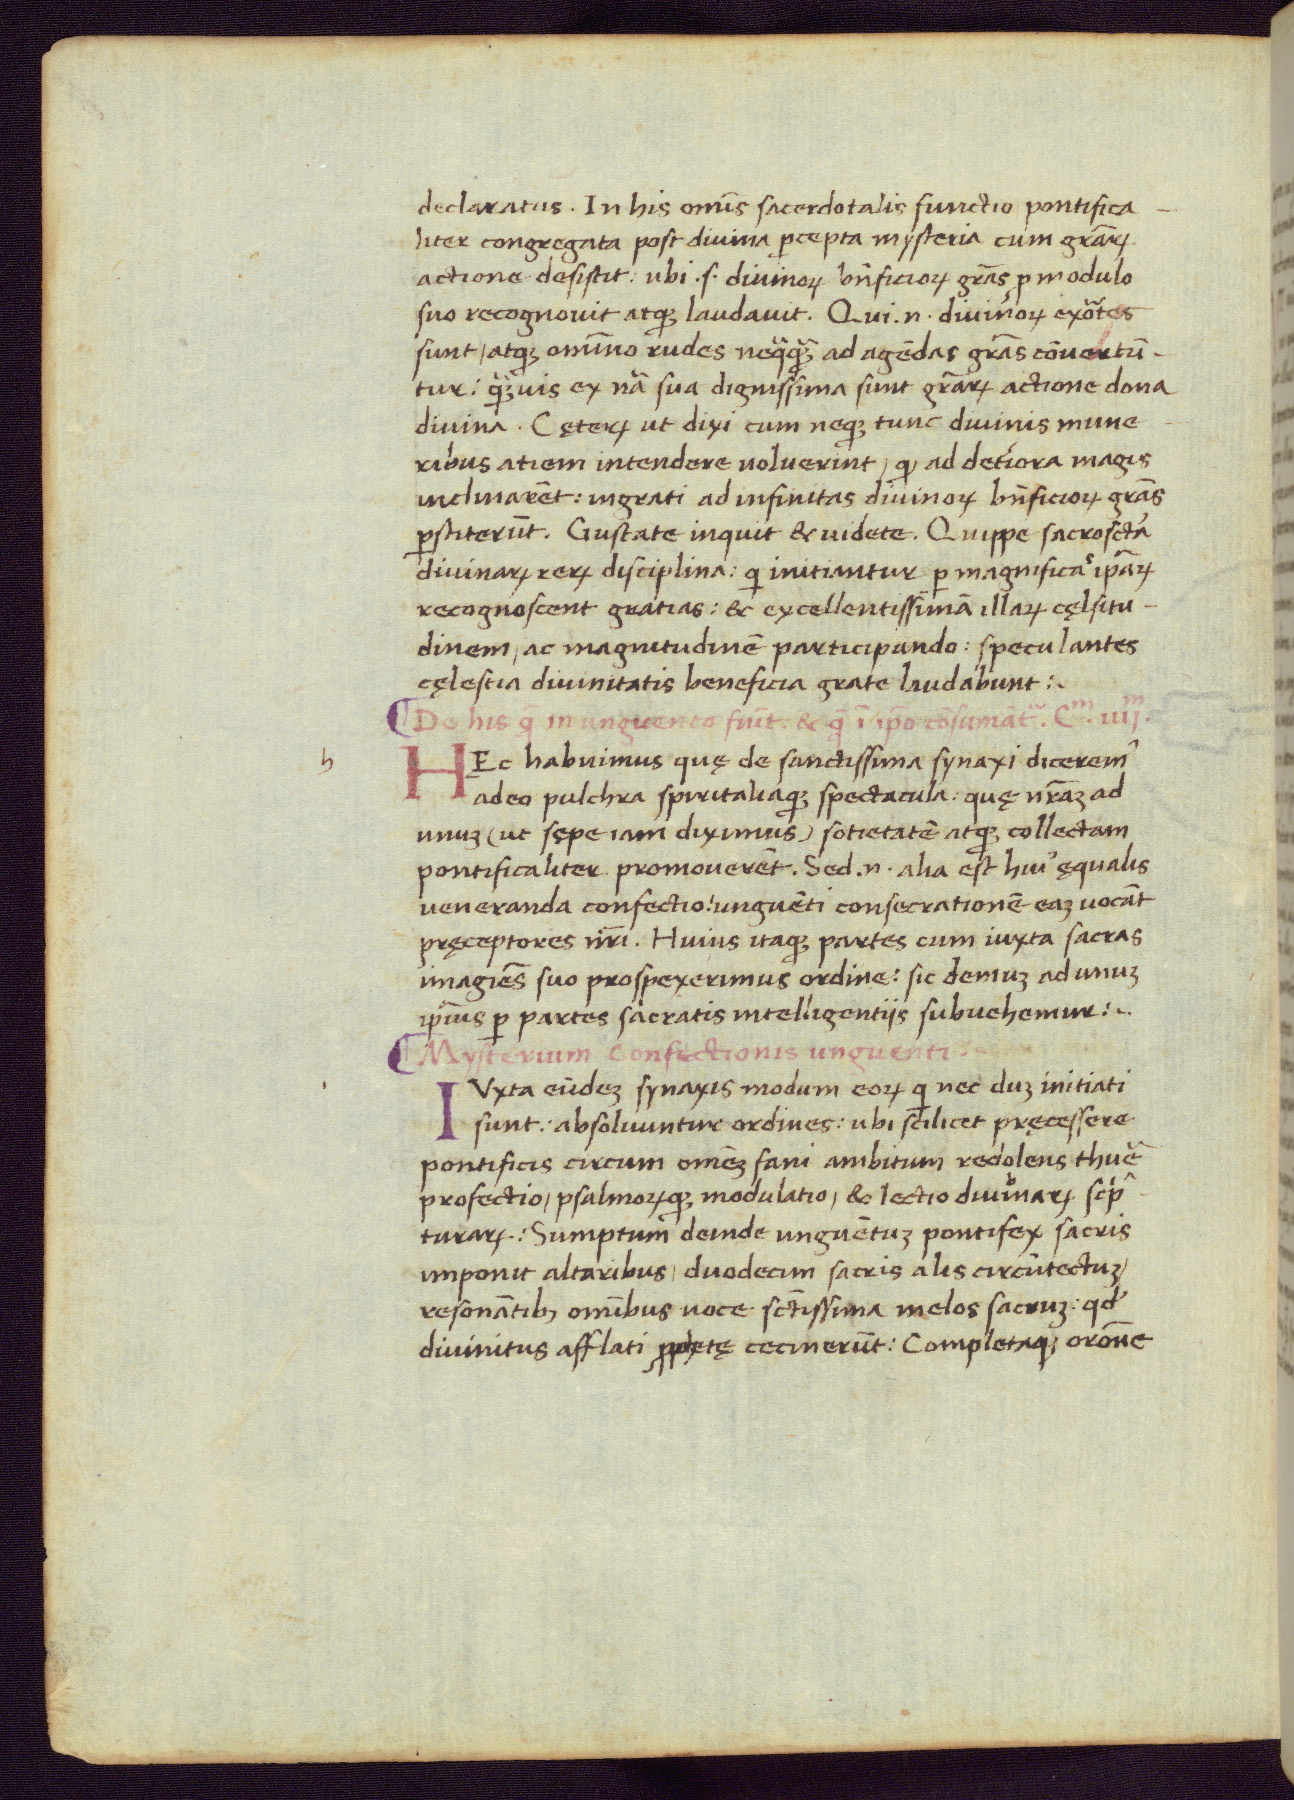 declaratus. In his om̄is sacerdotalis functio pontifica-
liter congregata post diuina ꝑcepta mysteria cum gr̄aꝝ
actione desistit: ubi .s. diuinoꝝ bn̄ficioꝝ gr̄as ꝓ modulo
suo recognouit atqꝫ laudauit. Qui .n. diuinoꝝ exõtes
sunt, atqꝫ omīno rudes neq̃q̃ꝫ ad agēdas gr̄as cōuertū-
tur: q̃ꝫuis ex nã sua dignissima sunt gr̄aꝝ actione dona
diuina. Cęteꝝ ut dixi cum neqꝫ tunc diuinis mune
ribus atiem intendere uoluerint, ꝙ ad detiora magis
inclinarēt: ingrati ad infinitas diuinoꝝ bn̄ficioꝝ gr̄as
ꝑstiterūt. Gustate inquit & uidete. Quippe sacroscta
diuinaꝝ reꝝ disciplina: q̇ initiantur ꝑ magnificas ip̄aꝝ
recognoscent gratias: & excellentissimā illaꝝ cęlsitu-
dinem, ac magnitudinē participando: speculantes
cęlestia diuinitatis beneficia grate laudabunt:.
De his q̄ in unguento fiūt. & q̄ ī ip̄o cōsumāt᷑. Cm. iiijm.
h
HEc habuimus quę de sanctissima synaxi diceremꝰ
adeo pulchra spiritaliaqꝫ spectacula: quę nr̄aꝫ ad
unuꝫ (ut sępe iam diximus) sotietatē atqꝫ collectam
pontificaliter promouerēt. Sed .n. alia est huiꝰ ęqualis
ueneranda confectio: unguēti consecrationē eaꝫ uocāt
pręceptores nr̄i. Huius itaqꝫ partes cum iuxta sacras
imagiēs suo prospexerimus ordine: sic demuꝫ ad unuꝫ
ip̄ius ꝑ partes sacratis intelligentijs subuehemur:.
Mysterium Confectionis unguenti
IVxta eūdeꝫ synaxis modum eoꝝ q̇ nec duꝫ initiati
sunt: absoluuntur ordines: ubi scilicet pręcessere
pontificis circum omēꝫ fani ambitum redolens thuē
profectio, psalmoꝝqꝫ modulatio, & lectio diuinaꝝ scp̄
turaꝝ: Sumptum deinde unguētuꝫ pontifex sacris
imponit altaribus, duodecim sacris alis circūtectuꝫ,
resonātibꝫ omībus uoce sct̄issima melos sacruꝫ: qd̓
diuinitus afflati ꝓphetę cecinerūt: Completaqꝫ orōne